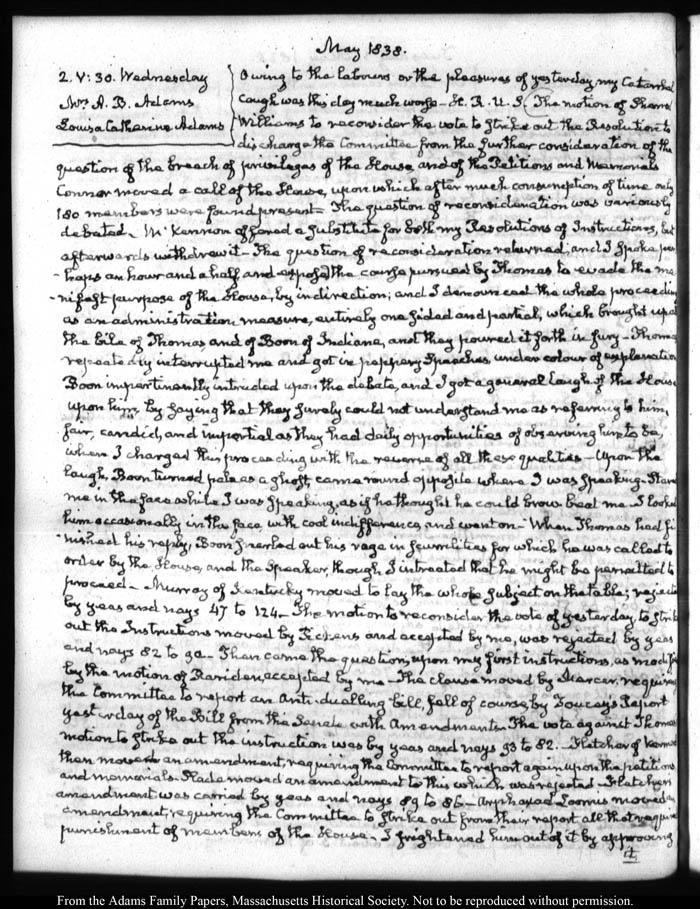 May 1838.
2. V: 30. Wednesday
Mrs A. B. Adams
Louisa Catherine Adams
Owing to the labours or the pleasures of yesterday, my Catarrhal
Cough was this day much worse — H. R. U. S. The motion of Sherrod
Williams to reconsider the vote to strike out the Resolution to
discharge the Committee from the further consideration of the
question of the breach of privileges of the House, and of the Petitions and Memorials
Connor moved a call of the House, upon which after much consumption of time only
180 members were found present — The question of reconsideration was variously
debated — McKennon offered a substitute for both my Resolutions of Instructions, but
afterwards withdrew it — The question of reconsideration returned, and I spoke per-
-haps an hour and a half and exposed the course pursued by Thomas to evade the ma-
-nifest purpose of the House, by indirection; and I denounced the whole proceeding
as an administration measure, entirely one sided and partial, which brought upon
the bile of Thomas, and of Boon of Indiana, and they poured it forth in fury — Thomas
repeatedly interrupted me and got in peppery Speeches under colour of explanation
Boon impertinently intruded upon the debate, and I got a general laugh of the House
upon him, by saying that they surely could not understand me as referring to him,
fair, candid, and impartial as they had daily opportunities of observing him to be,
when I charged this proceeding with the reverse of all these qualities — Upon the
laugh, Boon turned pale as a ghost, came round opposite where I was speaking. Stared
me in the face while I was speaking, as if he thought he could brow beat me. I looked
him occasionally in the face with cool indifference, and went on — When Thomas had fi-
-nished his reply, Boon snarled out his rage in scurrilities for which he was called to
order by the House, and the Speaker, though I intreated that he might be permitted to
proceed — Murray of Kentucky moved to lay the whole subject on the table; rejected
by yeas and nays 47 to 124 — The motion to reconsider the vote of yesterday, to strike
out the Instructions moved by Pickens and accepted by me, was rejected by yeas
and nays 82 to 92 — Then came the question, upon my first instructions, as modified
by the motion of Rariden, accepted by me — The clause moved by Mercer, requiring
the Committee to report an Anti-duelling bill, fell of course, by Toucey's Report
yesterday of the Bill from the Senate with Amendments. The vote against Thomas's
motion to strike out the instruction was by yeas and nays 93 to 82 — Fletcher of Vermont
then moved an amendment, requiring the Committee to report again upon the petitions
and memorials. Slade moved an amendment to this which was rejected — Fletcher's
amendment was carried by yeas and nays 89 to 86 — Arphaxad Loomis moved an
amendment, requiring the Committee to strike out from their report all that required
punishment of members of the House — I frightened him out of it by approving
it
From the Adams Family Papers, Massachusetts Historical Society. Not to be reproduced without permission.